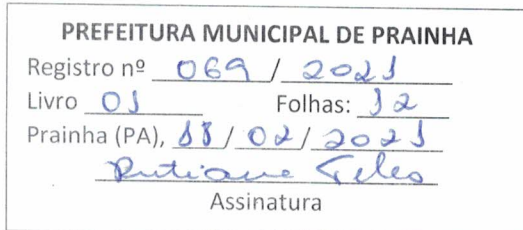 PREFEITURA MUNICIPAL DE PRAINHA
Registro nº 069 / 2021
Livro 01 Folhas: 12
Prainha (PA), 18 / 02 / 2021
Rutiane Teles
Assinatura